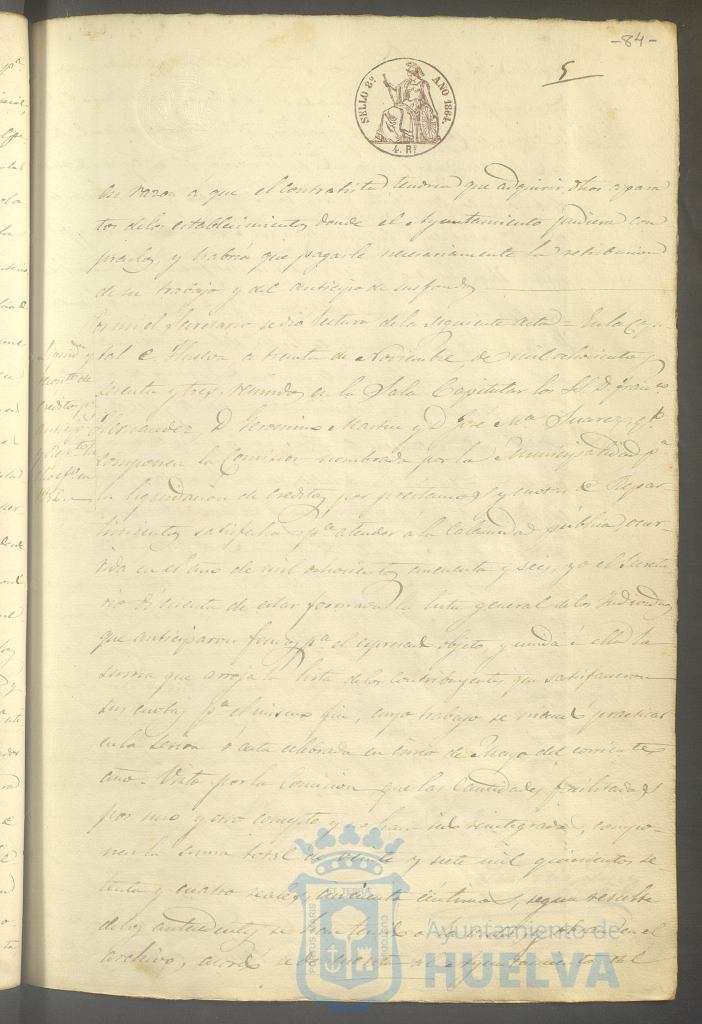 -84-
5
SELLO 8º AÑO 1864.
4. Rs
en razon á que el contratista tendria que adquirir otros apara
tos de los establecimientos donde el Ayuntamiento pudiera com
prarlos, y habria que pagarle necesariamente la retribucion
de su trabajo y del anticipo de sus fondos
Por mi el Secretario se dio lectura de la siguiente acta = En la Capi
tal de Huelva a treinta de Noviembre de mil ochocientos
sesenta y tres reunidos en la Sala Capitular los SS. D. Franco
Hernandez, D. Geronimo Martin y D. José Mª Suarez, q.e
componen la Comision nombrada por la Municipalidad pª
la liquidacion de creditos por prestamos y cuotas de Repar
timientos satisfechas pª atender a la Calamidad publica ocur
rida en el año de mil ochocientos cincuenta y seis, yo el Secreta
rio dí cuenta de estar formada la lista general de los Individuos
que anticiparon fondos pª el espresado objeto, y unida á ella la
suma que arroja la lista de los contribuyentes que satisfacieron
sus cuotas pª el mismo fin, cuyo trabajo se mandó practicar
en la sesion ó acta celebrada en cinco de Mayo del corriente
año. Visto por la comision que las Cantidades facilitadas
por uno y otro concepto y no han sido reintegradas, compo
nen la suma total de veinte y siete mil quinientos se
tenta y cuatro reales cincuenta centimos, segun resulta
de los antecedentes se han tenido a la vista y obran en el
archivo, acordó se dé cuenta al Ayuntamiento del
PORTUS MARIS ET TERRAE CUSTODIA
Ayuntamiento de
HUELVA